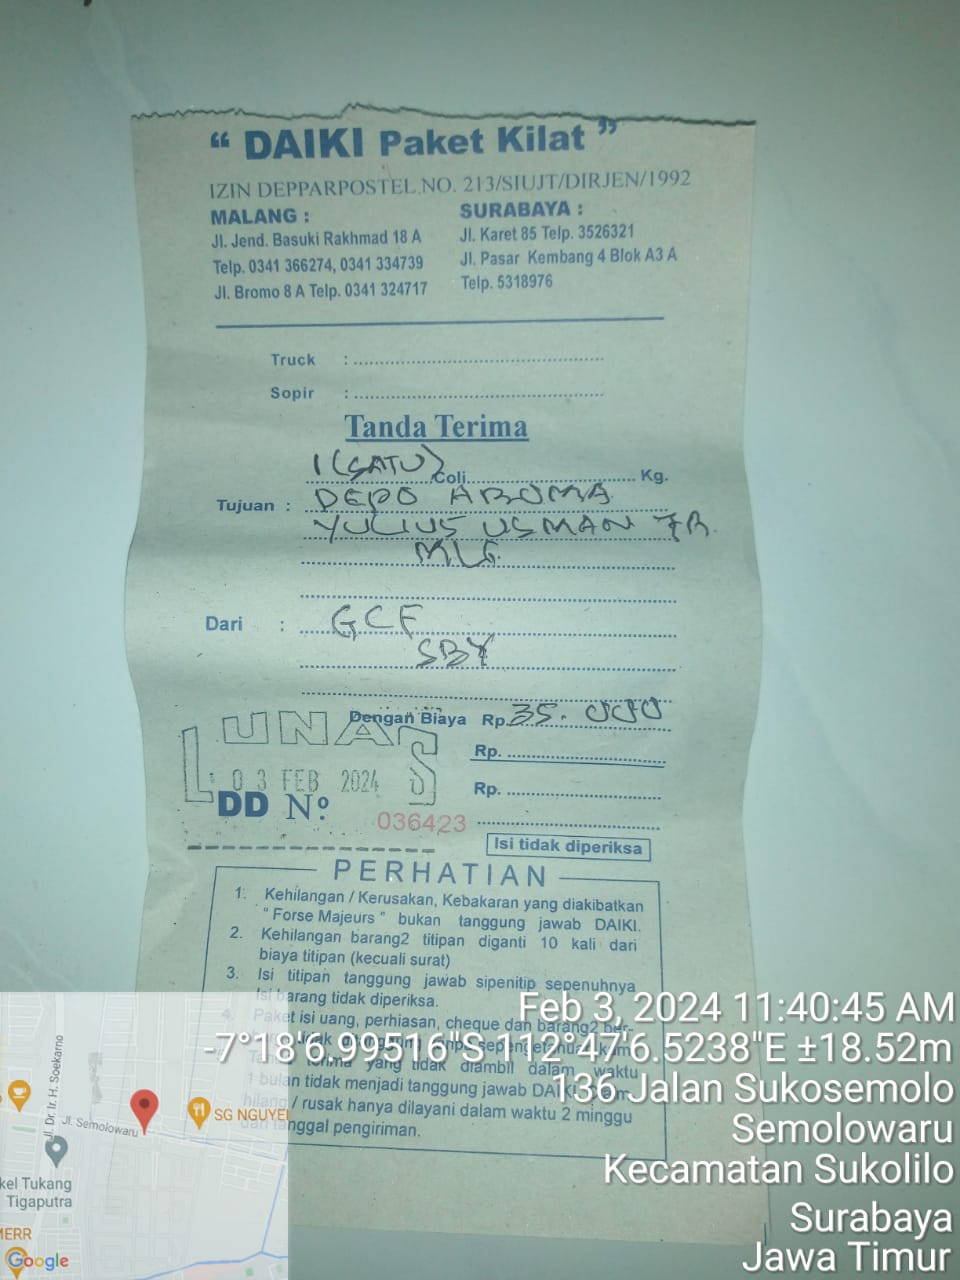 “ DAIKI Paket Kilat ”
IZIN DEPPARPOSTEL.NO. 213/SIUJT/DIRJEN/1992
MALANG :
Jl. Jend. Basuki Rakhmad 18 A
Telp. 0341 366274, 0341 334739
Jl. Bromo 8 A Telp. 0341 324717
SURABAYA :
Jl. Karet 85 Telp. 3526321
Jl. Pasar Kembang 4 Blok A3 A
Telp. 5318976
Truck :
Sopir :
Tanda Terima
1 (SATU) Coli Kg.
Tujuan : DEPO AROMA
YULIUS USMAN 7A.
MLG.
Dari : GCF
SBY
Dengan Biaya Rp. 35.000
Rp.
Rp.
LUNAS
03 FEB 2024
DD Nº 036423
Isi tidak diperiksa
PERHATIAN
1. Kehilangan / Kerusakan, Kebakaran yang diakibatkan
“ Forse Majeurs “ bukan tanggung jawab DAIKI.
2. Kehilangan barang2 titipan diganti 10 kali dari
biaya titipan (kecuali surat)
3. Isi titipan tanggung jawab sipenitip sepenuhnya
Isi barang tidak diperiksa.
4. Paket isi uang, perhiasan, cheque dan barang2 ber-
yang tidak diambil dalam waktu
1 bulan tidak menjadi tanggung jawab
hilang / rusak hanya dilayani dalam waktu 2 minggu
dari tanggal pengiriman.
Feb 3, 2024 11:40:45 AM
-7°18'6.99516"S 112°47'6.5238"E ±18.52m
136 Jalan Sukosemolo
Semolowaru
Kecamatan Sukolilo
Surabaya
Jawa Timur
Jl. Dr. Ir. H. Soekarno
Jl. Semolowaru
SG NGUYEN
kel Tukang
Tigaputra
MERR
Google